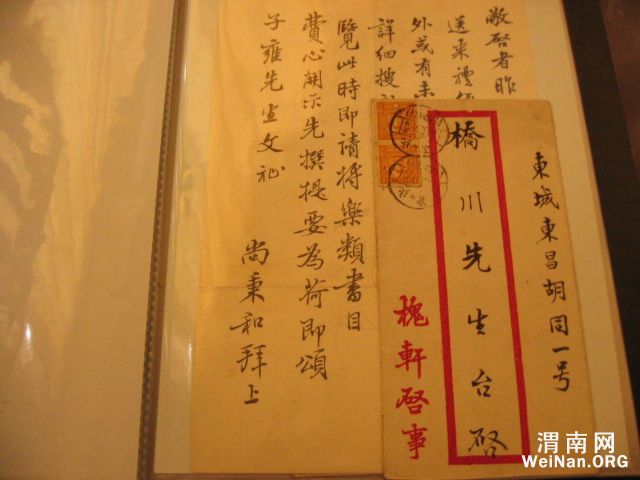 敬啓者昨
送来禮
外或有未
詳細搜
覽此時即請將樂類書目
費心開示先撰提要為荷即頌
子雍先生文祉
尚秉和拜上
東城東昌胡同一号
橋川先生台啓
槐軒啓事
渭南网
WeiNan.ORG